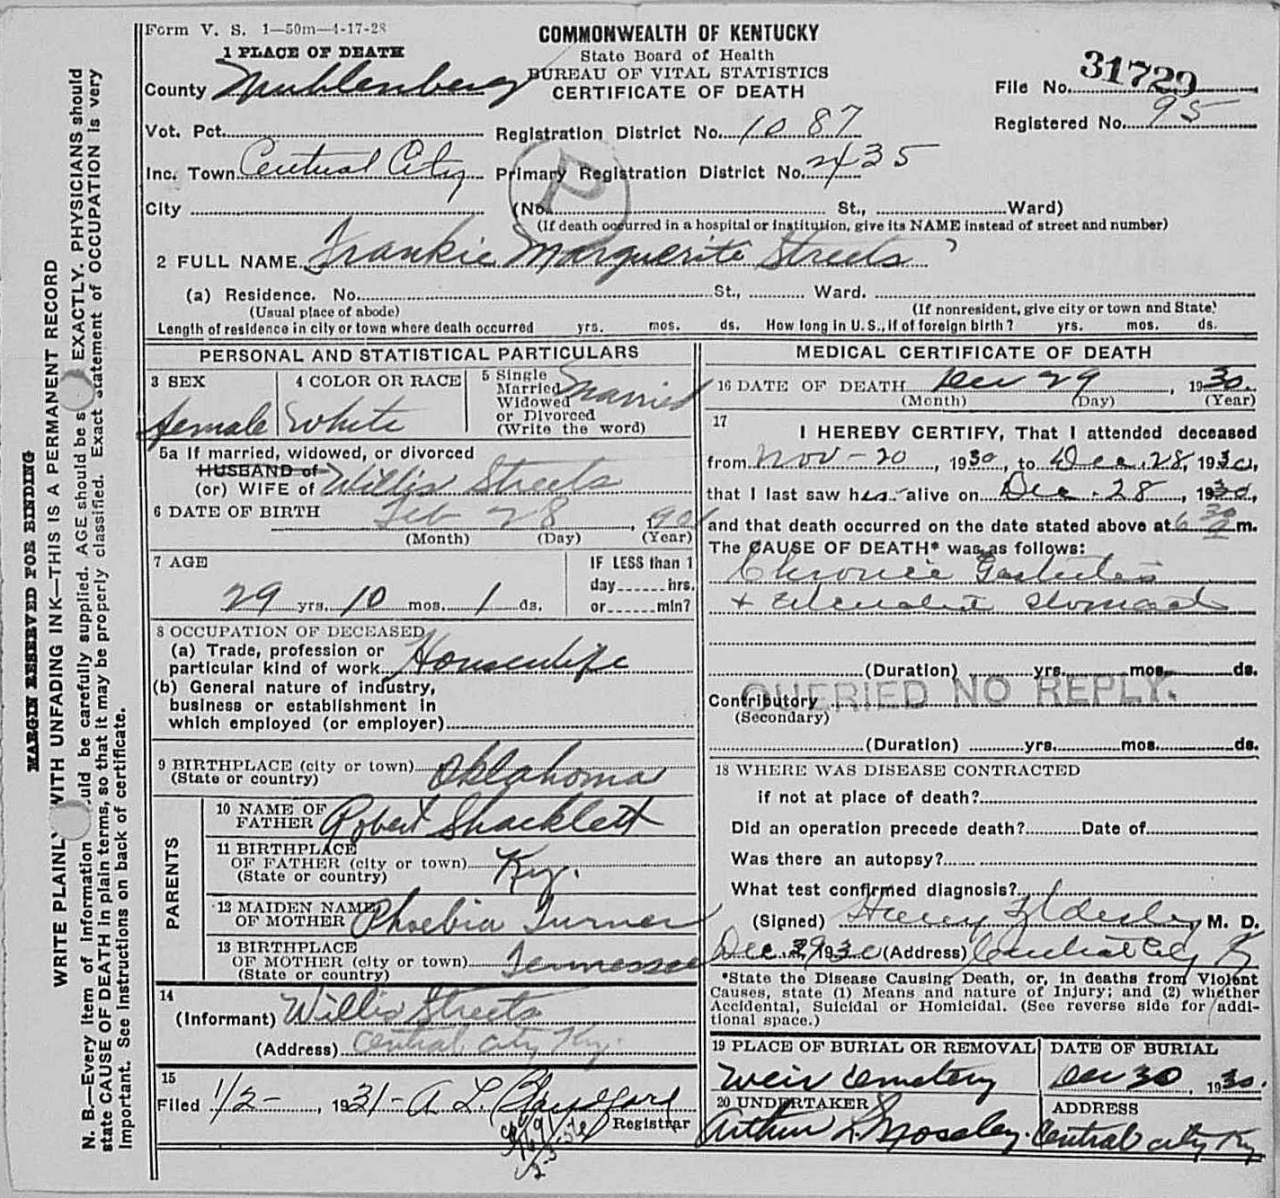 Form V. S. 1—50m—4-17-28
COMMONWEALTH OF KENTUCKY
State Board of Health
BUREAU OF VITAL STATISTICS
CERTIFICATE OF DEATH
1 PLACE OF DEATH
County Muhlenberg
File No. 31729
Registered No. 95
Vot. Pct. Registration District No. 1087
Inc. Town Central City Primary Registration District No. 2435
City (No. St., Ward)
(If death occurred in a hospital or institution, give its NAME instead of street and number)
2 FULL NAME Frankie Marguerite Streets
(a) Residence. No. St., Ward.
(Usual place of abode) (If nonresident, give city or town and State)
Length of residence in city or town where death occurred yrs. mos. ds. How long in U. S., if of foreign birth? yrs. mos. ds.
PERSONAL AND STATISTICAL PARTICULARS
3 SEX 4 COLOR OR RACE 5 Single Married Widowed or Divorced (Write the word)
female White Married
5a If married, widowed, or divorced
HUSBAND of
(or) WIFE of Willis Streets
6 DATE OF BIRTH Feb 28, 1901
(Month) (Day) (Year)
7 AGE IF LESS than 1
29 yrs. 10 mos. 1 ds. day hrs.
or min?
8 OCCUPATION OF DECEASED
(a) Trade, profession or
particular kind of work Housewife
(b) General nature of industry,
business or establishment in
which employed (or employer)
9 BIRTHPLACE (city or town) Oklahoma
(State or country)
PARENTS
10 NAME OF
FATHER Robert Shacklett
11 BIRTHPLACE
OF FATHER (city or town) Ky.
(State or country)
12 MAIDEN NAME
OF MOTHER Phoebia Turner
13 BIRTHPLACE
OF MOTHER (city or town) Tennessee
(State or country)
14
(Informant) Willis Streets
(Address) Central City Ky.
15
Filed 1/2-, 1931- A. L. Registrar
MEDICAL CERTIFICATE OF DEATH
16 DATE OF DEATH Dec 29, 1930.
(Month) (Day) (Year)
17
I HEREBY CERTIFY, That I attended deceased
from Nov-20, 1930, to Dec. 28, 1930,
that I last saw her alive on Dec. 28, 1930,
and that death occurred on the date stated above at 6 30 m.
The CAUSE OF DEATH* was as follows:
Chronic Gastritis
+ Stomach
(Duration) yrs. mos. ds.
QUERIED NO REPLY.
Contributory
(Secondary)
(Duration) yrs. mos. ds.
18 WHERE WAS DISEASE CONTRACTED
if not at place of death?
Did an operation precede death? Date of
Was there an autopsy?
What test confirmed diagnosis?
(Signed) M. D.
Dec. 29 1930 (Address) Central City Ky
*State the Disease Causing Death, or, in deaths from Violent
Causes, state (1) Means and nature of Injury; and (2) whether
Accidental, Suicidal or Homicidal. (See reverse side for addi-
tional space.)
19 PLACE OF BURIAL OR REMOVAL DATE OF BURIAL
Weir Cemetery Dec 30, 1930.
20 UNDERTAKER ADDRESS
Arthur L. Moseley. Central City Ky
MARGIN RESERVED FOR BINDING
WRITE PLAINLY WITH UNFADING INK—THIS IS A PERMANENT RECORD
N. B.—Every item of information should be carefully supplied. AGE should be s EXACTLY. PHYSICIANS should
state CAUSE OF DEATH in plain terms, so that it may be properly classified. Exact statement of OCCUPATION is very
important. See instructions on back of certificate.